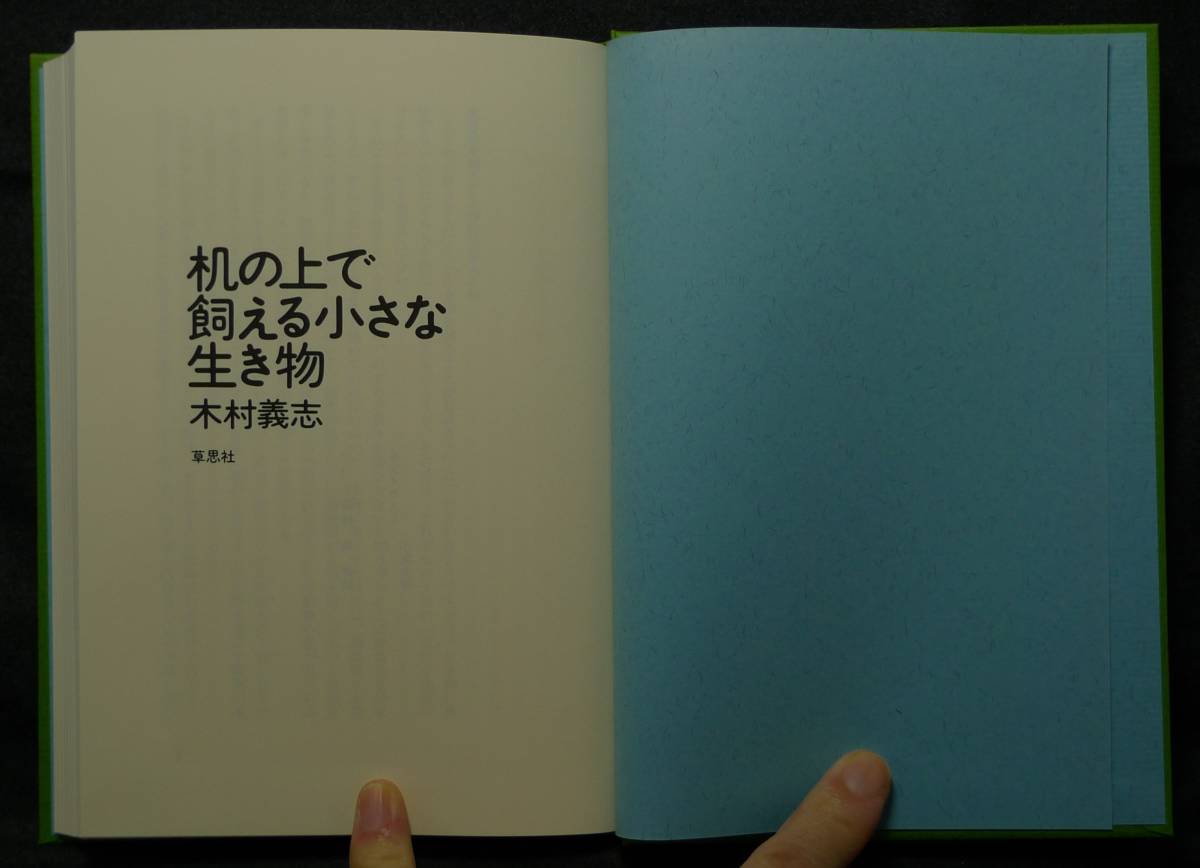 机の上で
飼える小さな
生き物
木村義志
草思社